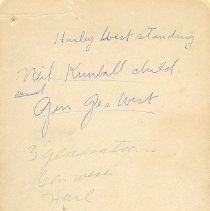 Harley West standing
Neil Kimball child
and
Gen Gles West
3 generations
Gen West
Harl